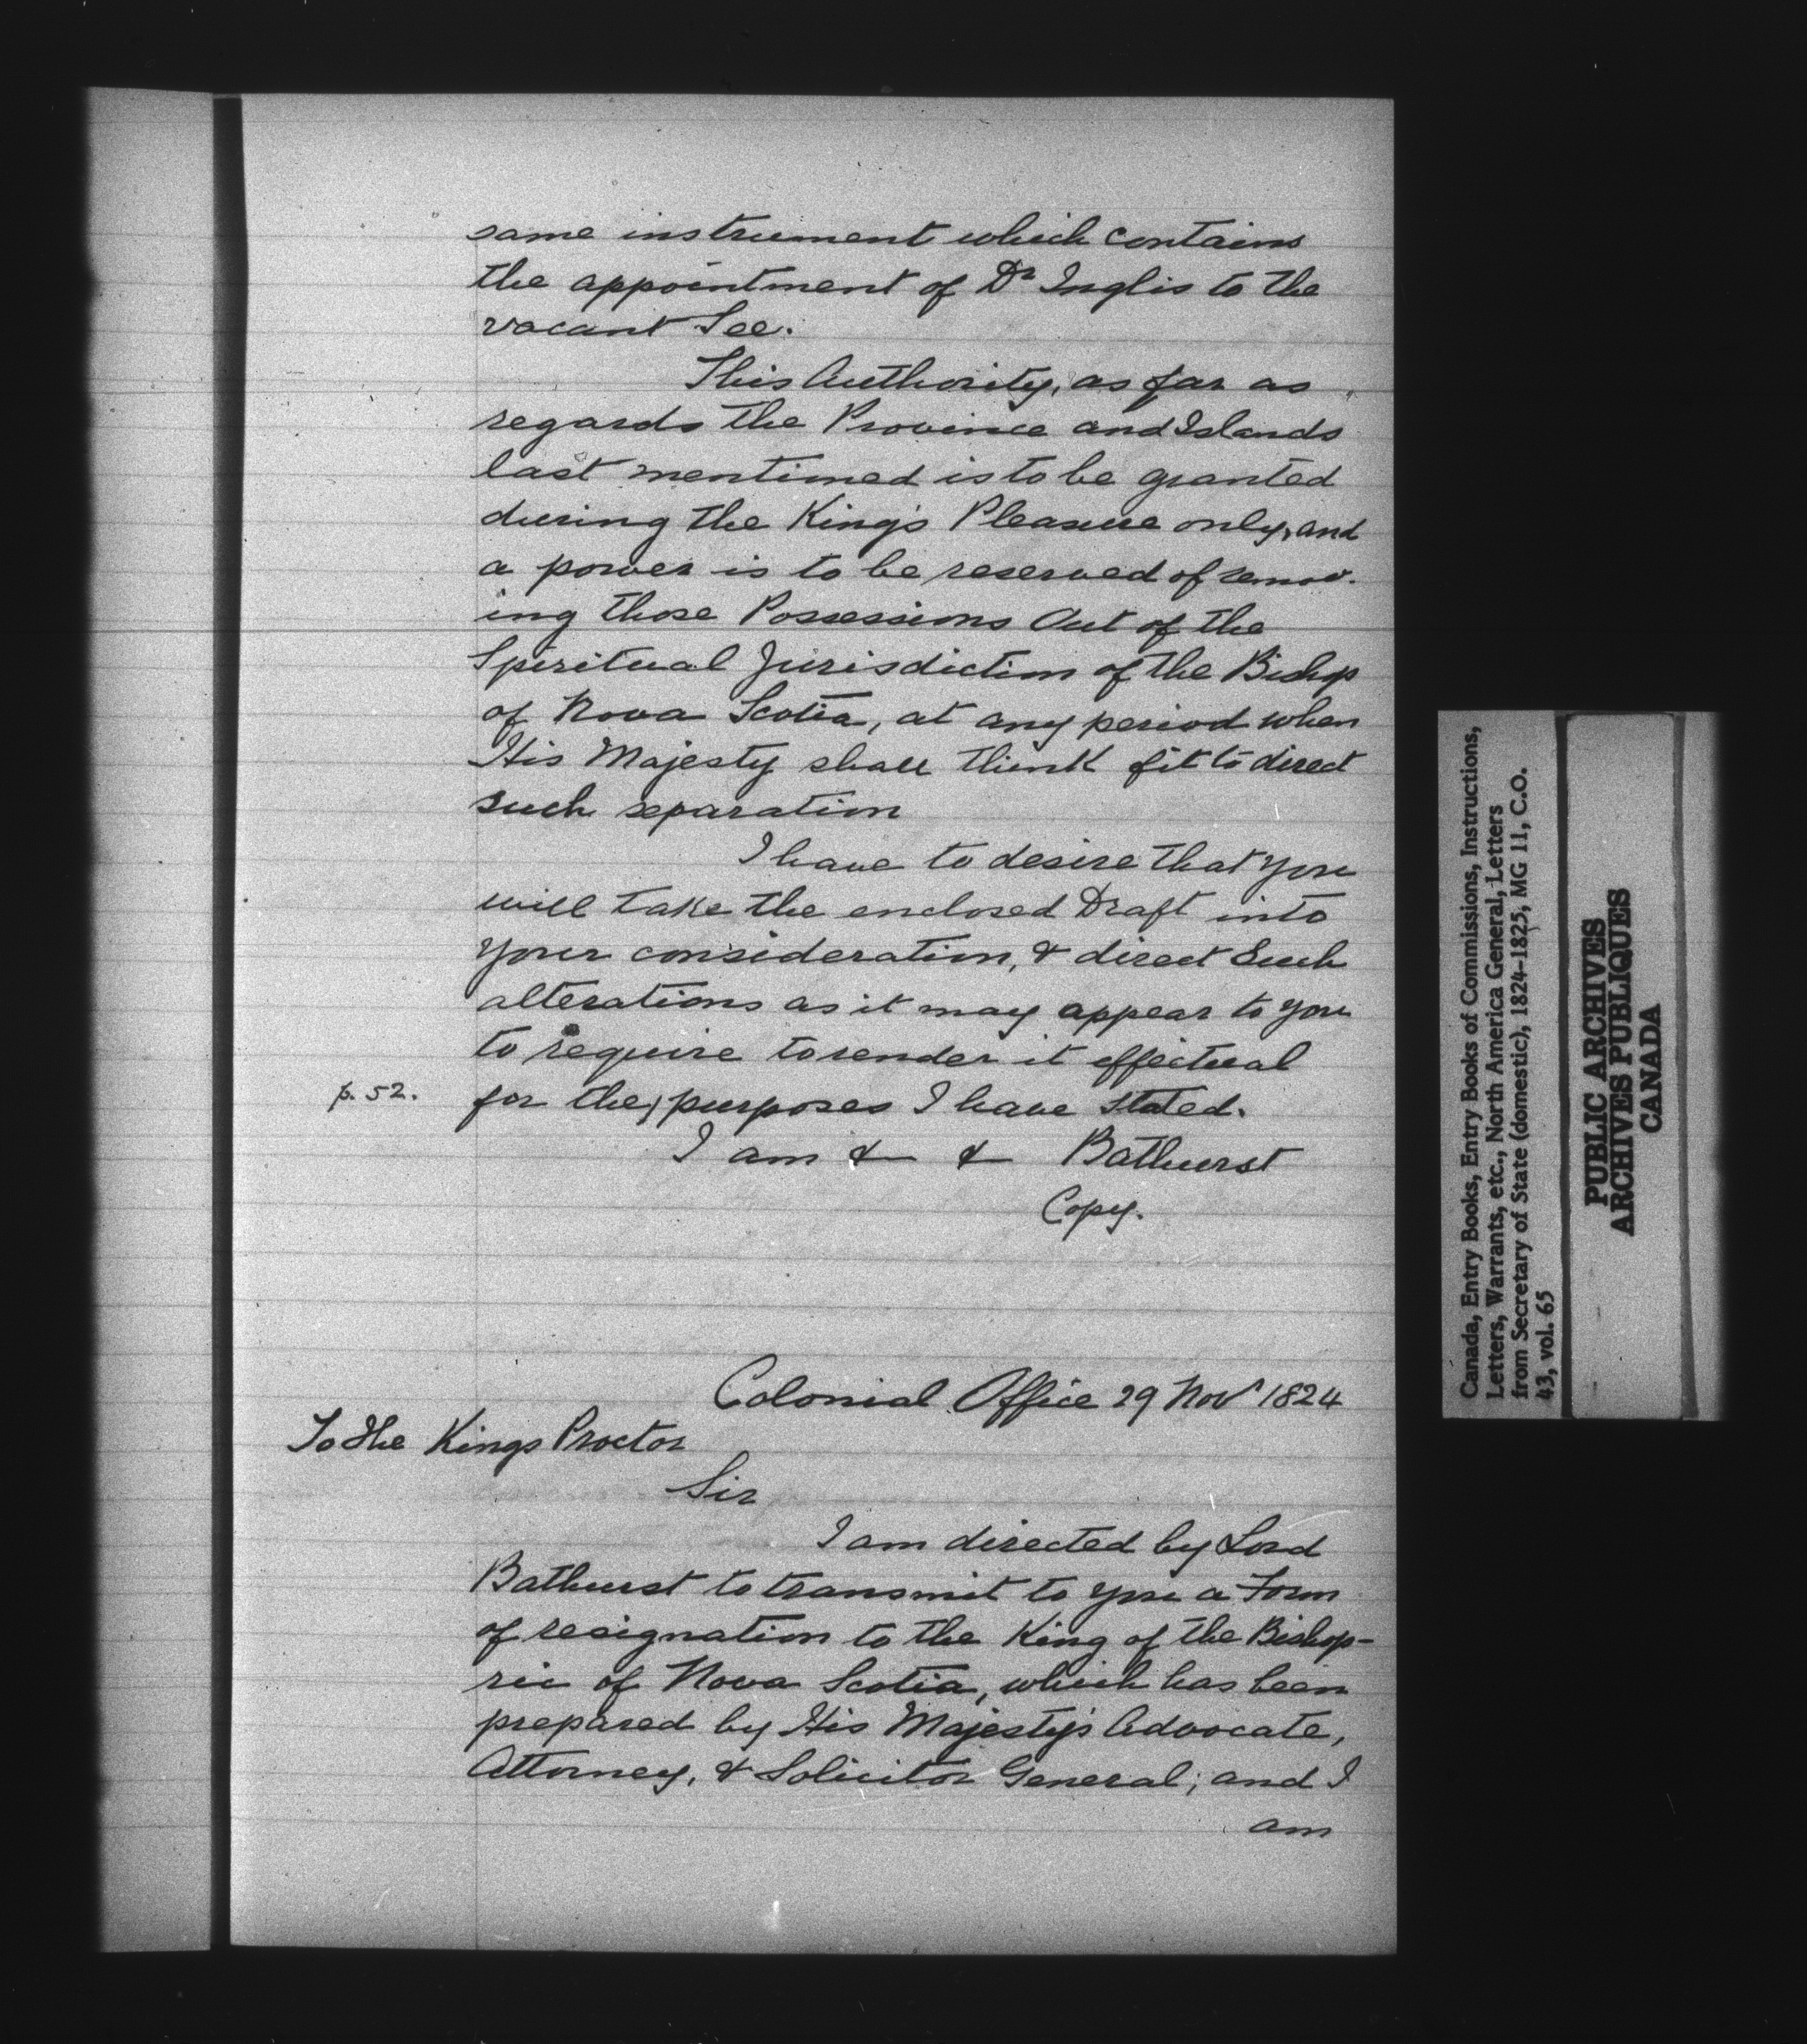 same instrument which contains
the appointment of Dr Inglis to the
vacant See.
This Authority, as far as
regards the Province and Islands
last mentioned is to be granted
during the King's Pleasure only, and
a power is to be reserved of remov-
ing those Possessions Out of the
Spiritual Jurisdiction of the Bishop
of Nova Scotia, at any period when
His Majesty shall think fit to direct
such separation
I have to desire that you
will take the enclosed Draft into
your consideration, & direct Such
alterations as it may appear to you
to require to render it effectual
p. 52. for the, purposes I have stated.
I am & & Bathurst
Copy.
Colonial Office 29 Nov 1824
To the Kings Proctor
Sir
I am directed by Lord
Bathurst to transmit to you a Form
of resignation to the King of the Bishop-
ric of Nova Scotia, which has been
prepared by His Majesty's Advocate,
Attorney, & Solicitor General; and I
am
Canada, Entry Books, Entry Books of Commissions, Instructions,
Letters, Warrants, etc., North America General, Letters
from Secretary of State (domestic), 1824-1825, MG 11, C.O.
43, vol. 65
PUBLIC ARCHIVES
ARCHIVES PUBLIQUES
CANADA